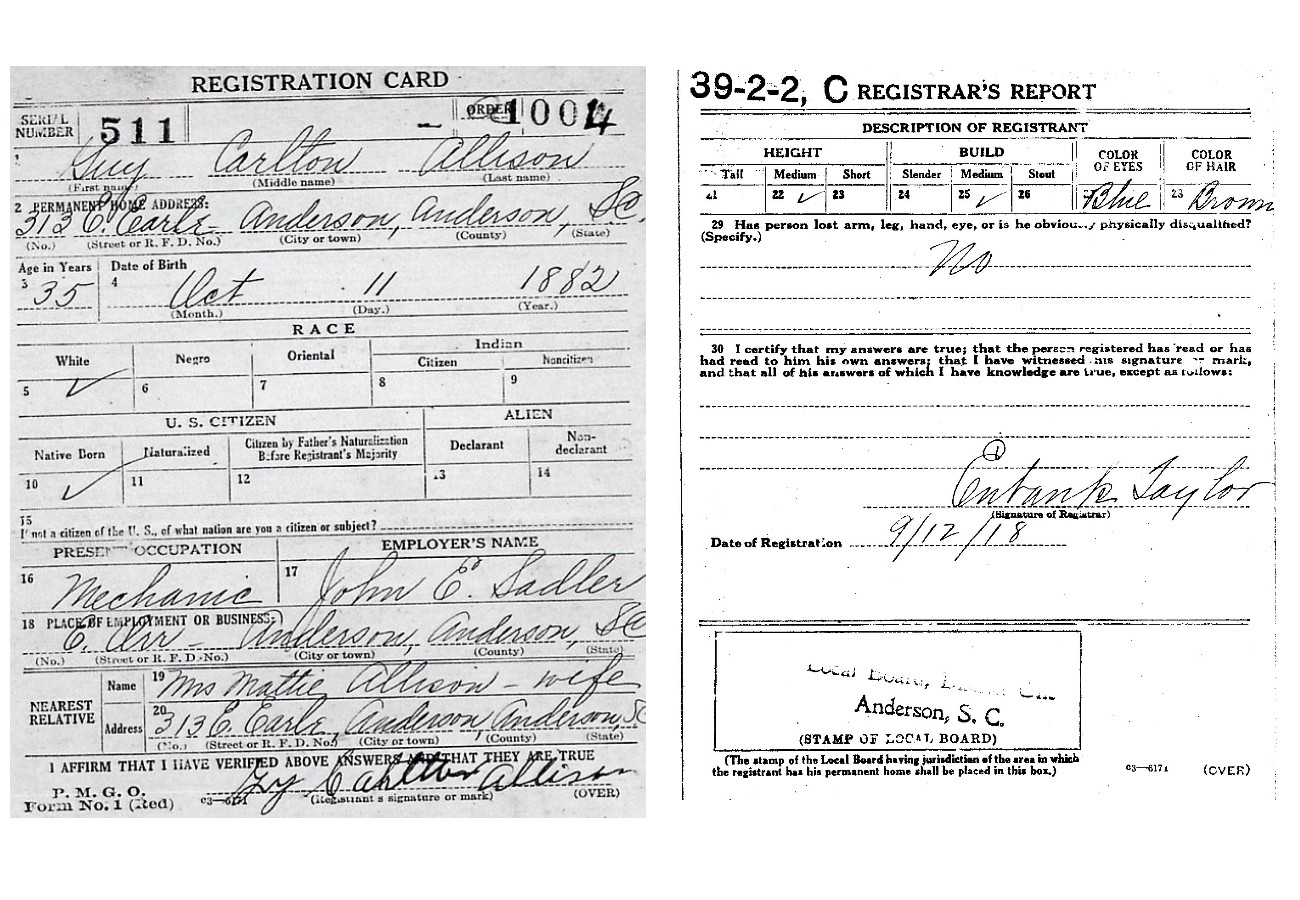 REGISTRATION CARD
SERIAL NUMBER 511 ORDER 1004
1 Guy Carlton Allison
(First name) (Middle name) (Last name)
2 PERMANENT HOME ADDRESS:
313 E. Earle Anderson, Anderson, SC.
(No.) (Street or R. F. D. No.) (City or town) (County) (State)
Age in Years Date of Birth
3 35 4 Oct 11 1882
(Month.) (Day.) (Year.)
RACE
White Negro Oriental Indian
Citizen Noncitizen
5 ✓ 6 7 8 9
U. S. CITIZEN ALIEN
Native Born Naturalized Citizen by Father's Naturalization Before Registrant's Majority Declarant Non-declarant
10 ✓ 11 12 13 14
15
If not a citizen of the U. S., of what nation are you a citizen or subject?
PRESENT OCCUPATION EMPLOYER'S NAME
16 Mechanic 17 John E. Sadler
18 PLACE OF EMPLOYMENT OR BUSINESS:
E. Orr - Anderson, Anderson, SC
(No.) (Street or R. F. D. No.) (City or town) (County) (State)
NEAREST RELATIVE
Name 19 Mrs Mattie Allison - wife
Address 20 313 E. Earle, Anderson, Anderson, SC
(No.) (Street or R. F. D. No.) (City or town) (County) (State)
I AFFIRM THAT I HAVE VERIFIED ABOVE ANSWERS AND THAT THEY ARE TRUE
P. M. G. O.
Form No. 1 (Red) 03—6171 Guy Carlton Allison
(Registrant's signature or mark) (OVER)
39-2-2, C REGISTRAR'S REPORT
DESCRIPTION OF REGISTRANT
HEIGHT BUILD COLOR OF EYES COLOR OF HAIR
Tall Medium Short Slender Medium Stout
21 22 ✓ 23 24 25 ✓ 26 27 Blue 28 Brown
29 Has person lost arm, leg, hand, eye, or is he obviously physically disqualified?
(Specify.)
No
30 I certify that my answers are true; that the person registered has read or has
had read to him his own answers; that I have witnessed his signature or mark,
and that all of his answers of which I have knowledge are true, except as follows:
1
Eubank Taylor
(Signature of Registrar)
Date of Registration 9/12/18
Local Board,
Anderson, S. C.
(STAMP OF LOCAL BOARD)
(The stamp of the Local Board having jurisdiction of the area in which
the registrant has his permanent home shall be placed in this box.)
03—6171 (OVER)